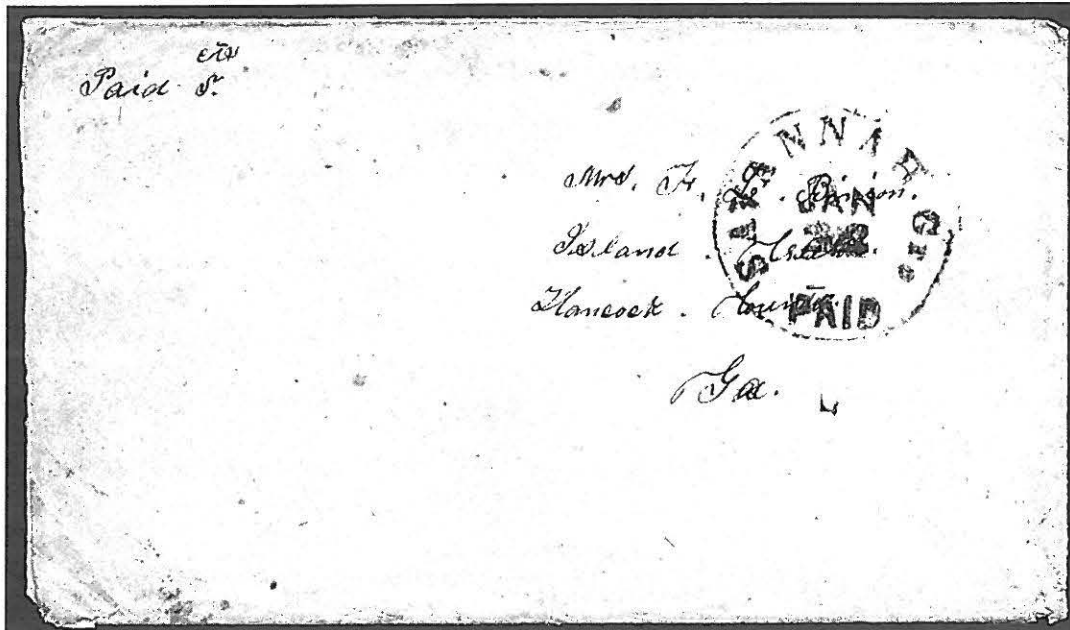 Paid 5 cts
Mrs. F.
Island Creek.
Hancock. County.
Ga.
SAVANNAH Geo.
JAN
PAID